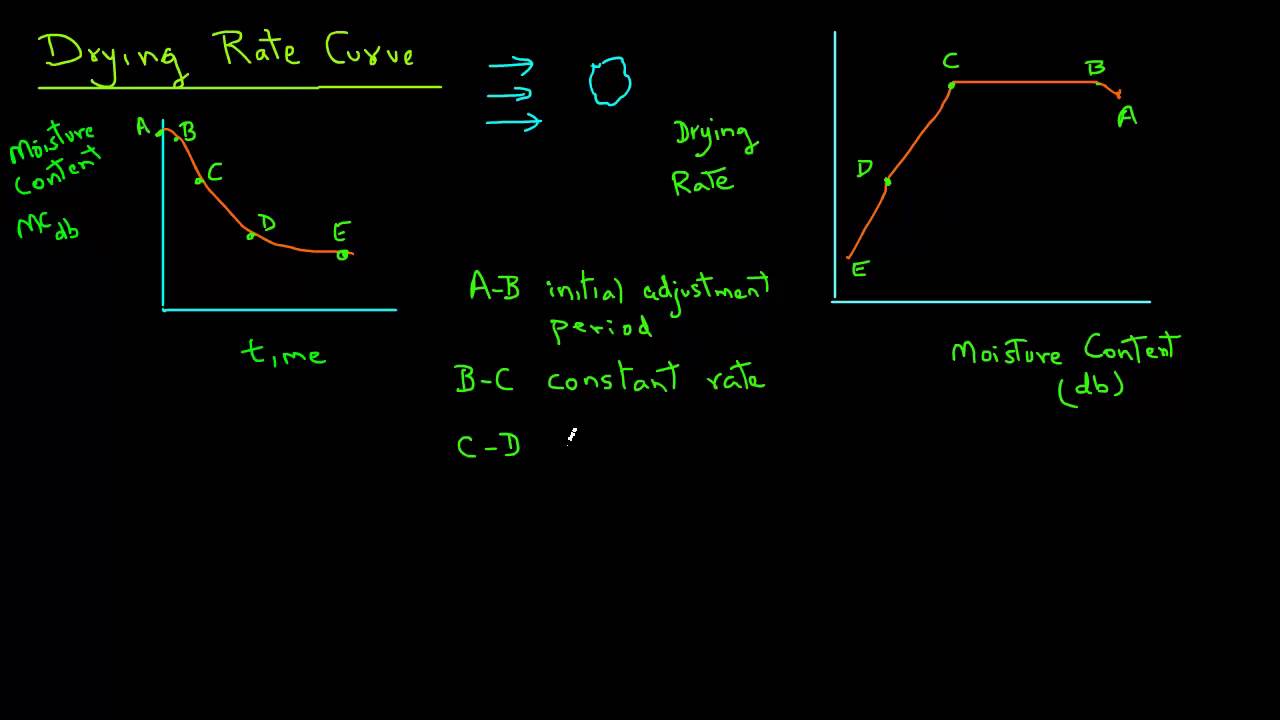 Drying Rate Curve
Moisture
Content
MC db
A
B
C
D
E
time
Drying
Rate
A-B initial adjustment
period
B-C constant rate
C-D
C
B
A
D
E
Moisture Content
(db)